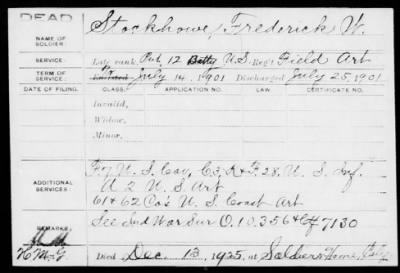 DEAD
NAME OF SOLDIER: Stockhowe, Frederick W.
SERVICE: Late rank, Pvt. 12 Batty U.S. Reg't Field Art
TERM OF SERVICE: July 14, 1901 Discharged July 25 1901
DATE OF FILING. CLASS. APPLICATION NO. LAW CERTIFICATE NO.
Invalid,
Widow,
Minor,
ADDITIONAL SERVICES: F, 7 U. S. Cav, Co. A & F. 28. U. S. Inf.
A 2 U. S. Art
61 & 62 Co's U. S. Coast Art
REMARKS: See Ind War Sur O. 10.356 & Ctf 7130
Died Dec. 13, 1925, at Soldiers Home, Calif